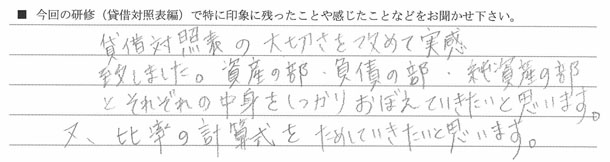 ■ 今回の研修（貸借対照表編）で特に印象に残ったことや感じたことなどをお聞かせ下さい。
貸借対照表の大切さを改めて実感
致しました。資産の部・負債の部・純資産の部
とそれぞれの中身をしっかりおぼえていきたいと思います。
又、比率の計算式をためしていきたいと思います。